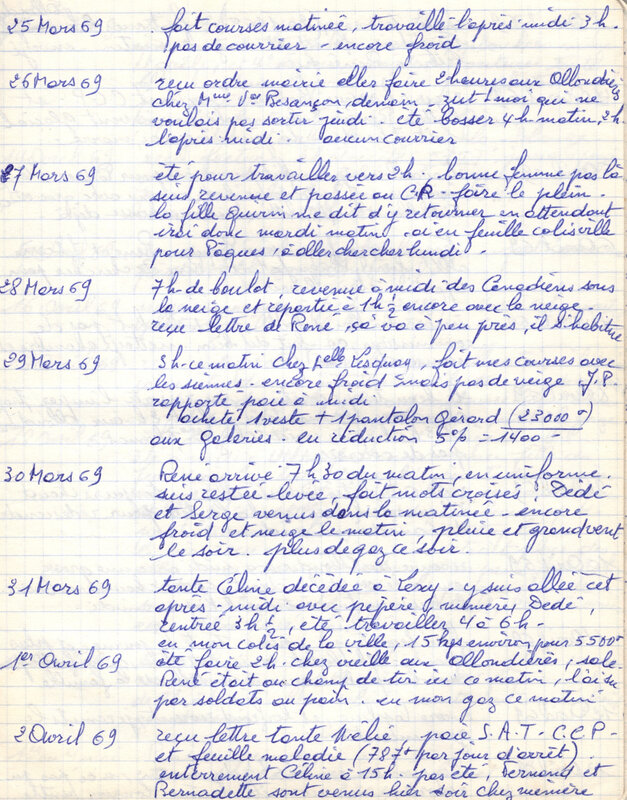 25 Mars 69 . fait courses matinée, travaillé l'après-midi 3h.
pas de courrier - encore froid
26 Mars 69 reçu ordre mairie aller faire 2 heures aux Ollondières
chez Mme Vor Besançon, demain. zut! moi qui ne
voulais pas sortir jeudi. été bosser 4h matin, 2h
l'après-midi. aucun courrier
27 Mars 69 été pour travailler vers 2h. bonne femme pas là
suis revenue et passée au C.R - faire le plein.
la fille Guerin me dit d'y retourner en attendant
irai donc mardi matin. ai eu feuille colis ville
pour Pâques, à aller chercher lundi.
28 Mars 69 7h. de boulot, revenue à midi des Canadiens sous
la neige et repartie à 1h ½ encore avec la neige.
reçu lettre de René, ça va à peu près, il s'habitue
29 Mars 69 3h. ce matin chez Melle Lesquoy, fait mes courses avec
les siennes. encore froid mais pas de neige. J.P.
rapporte paie à midi
acheté 1 veste + 1 pantalon Gérard (23000 )
aux galeries. eu réduction 5% = 1400 -
30 Mars 69 René arrivé 7h,30 du matin, en uniforme.
suis restée levée, fait mots croisés. Dédé
et Serge venus dans la matinée - encore
froid et neige le matin, pluie et grand vent
le soir. plus de gaz ce soir.
31 Mars 69 tante Céline décédée à Lexy. y suis allée cet
après-midi avec pépère, mémère, Dedé,
rentrée 3h ½, été travailler 4 à 6h.
eu mon colis de la ville, 15 kgs environ pour 5500
1er Avril 69 été faire 2h. chez vieille aux Ollondières, sale.
René était au champ de tir ici ce matin,
par soldats au pain. eu mon gaz ce matin
2 Avril 69 reçu lettre tante Mélie. paie S.A.T - C.C.P -
et feuille maladie (787 par jour d'arrêt).
enterrement Céline à 15h. pas été, Fernand et
Bernadette sont venus hier soir chez mémère